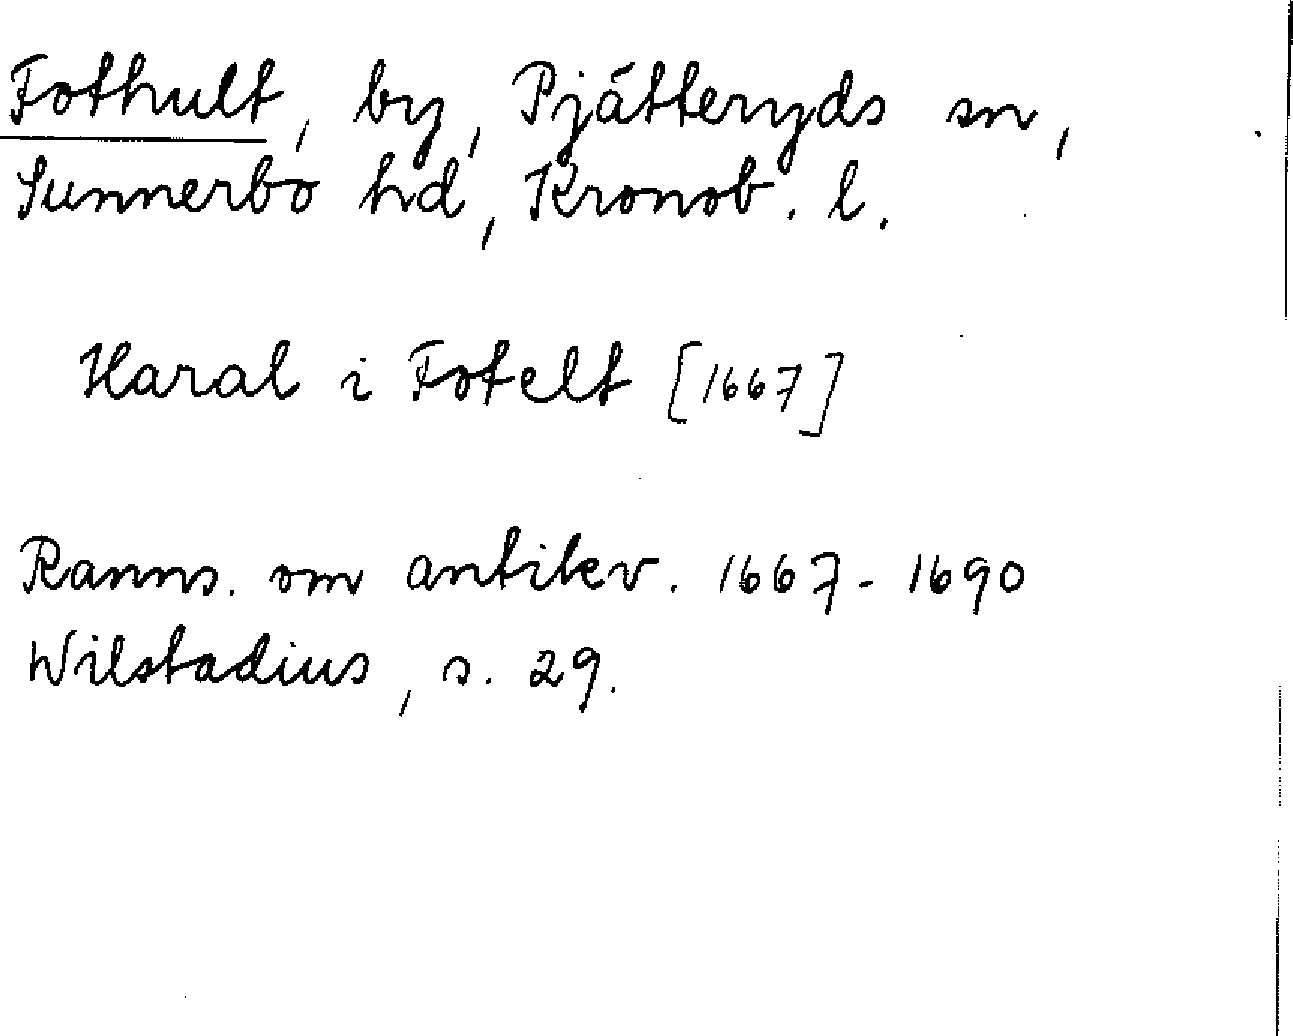 Fothult, by, Pjätteryds sn,
Sunnerbo hd, Kronob. l.
Haral i Fotelt [1667]
Ranns. om antikv. 1667-1690
Wilstadius, s. 29.